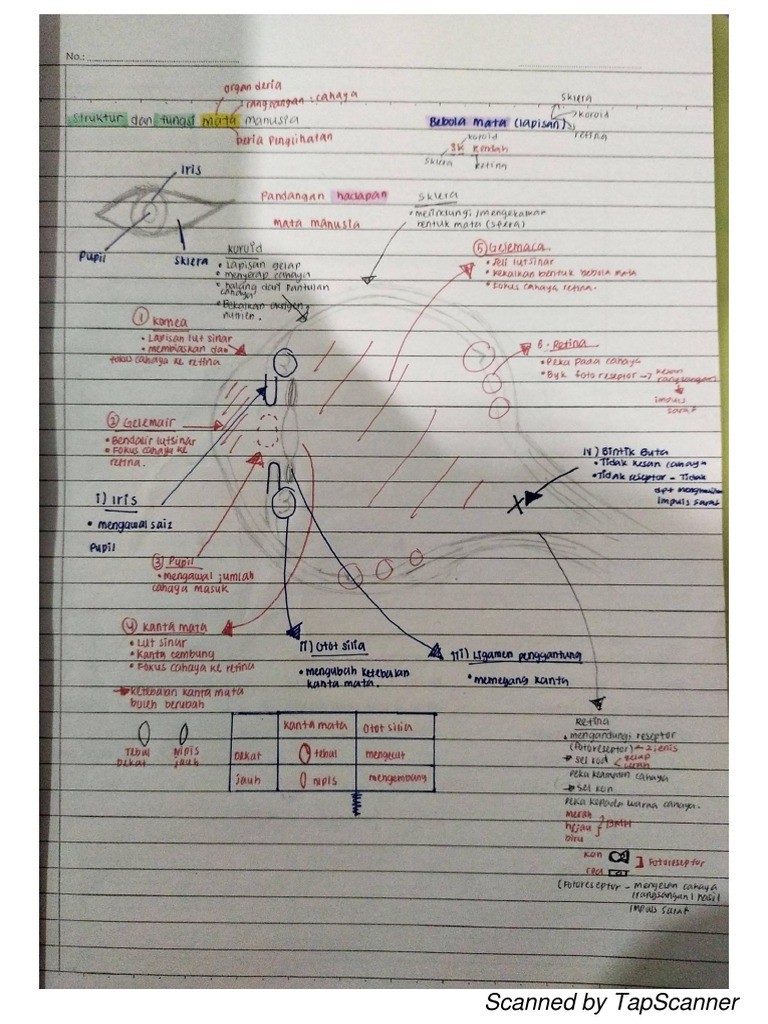 No.:
organ deria
rangsangan : cahaya
Struktur dan fungsi mata manusia
deria Penglihatan
Bebola mata (lapisan)
sklera
koroid
retina
koroid
SK Rendah
sklera
retina
Iris
Pupil
Sklera
Pandangan hadapan
mata manusia
Sklera
• melindungi / mengekalkan
bentuk mata (sfera)
koroid
• Lapisan gelap
• menyerap cahaya
• halang dari pantulan
cahaya
• Bekalkan oksigen,
nutrien.
5 Gelemaca
• Jeli lutsinar
• Kekalkan bentuk bebola mata
• Fokus cahaya retina.
1 Kornea
• Lapisan lut sinar
• membiaskan dan
fokus cahaya ke retina
6. Retina
• Peka pada cahaya
• Byk foto reseptor → kesan
rangsangan
impuls
saraf
2 Gelemair
• Bendalir lutsinar
• Fokus cahaya ke
retina.
iv) Bintik Buta
• Tidak kesan cahaya
• Tidak reseptor - Tidak
dpt
impuls saraf
i) Iris
• mengawal saiz
Pupil
3 Pupil
• mengawal jumlah
cahaya masuk
4 kanta mata
• Lut sinar
• Kanta cembung
• Fokus cahaya ke retina
→ ketebalan kanta mata
boleh berubah
ii) Otot silia
• mengubah ketebalan
kanta mata.
iii) Ligamen penggantung
• memegang kanta
Tebal
Dekat
Nipis
jauh
kanta mata
Otot silia
Dekat
tebal
mengecut
jauh
nipis
mengembang
Retina
• mengandungi reseptor
(Fotoreseptor) - 2 jenis
→ sel rod
gelap
Peka cahaya
→ Sel kon
Peka kepada warna cahaya.
merah
hijau } BMH
biru
kon
rod
] Fotoreseptor
(Fotoreseptor - mengesan cahaya
(rangsangan) hasil
impuls saraf
Scanned by TapScanner